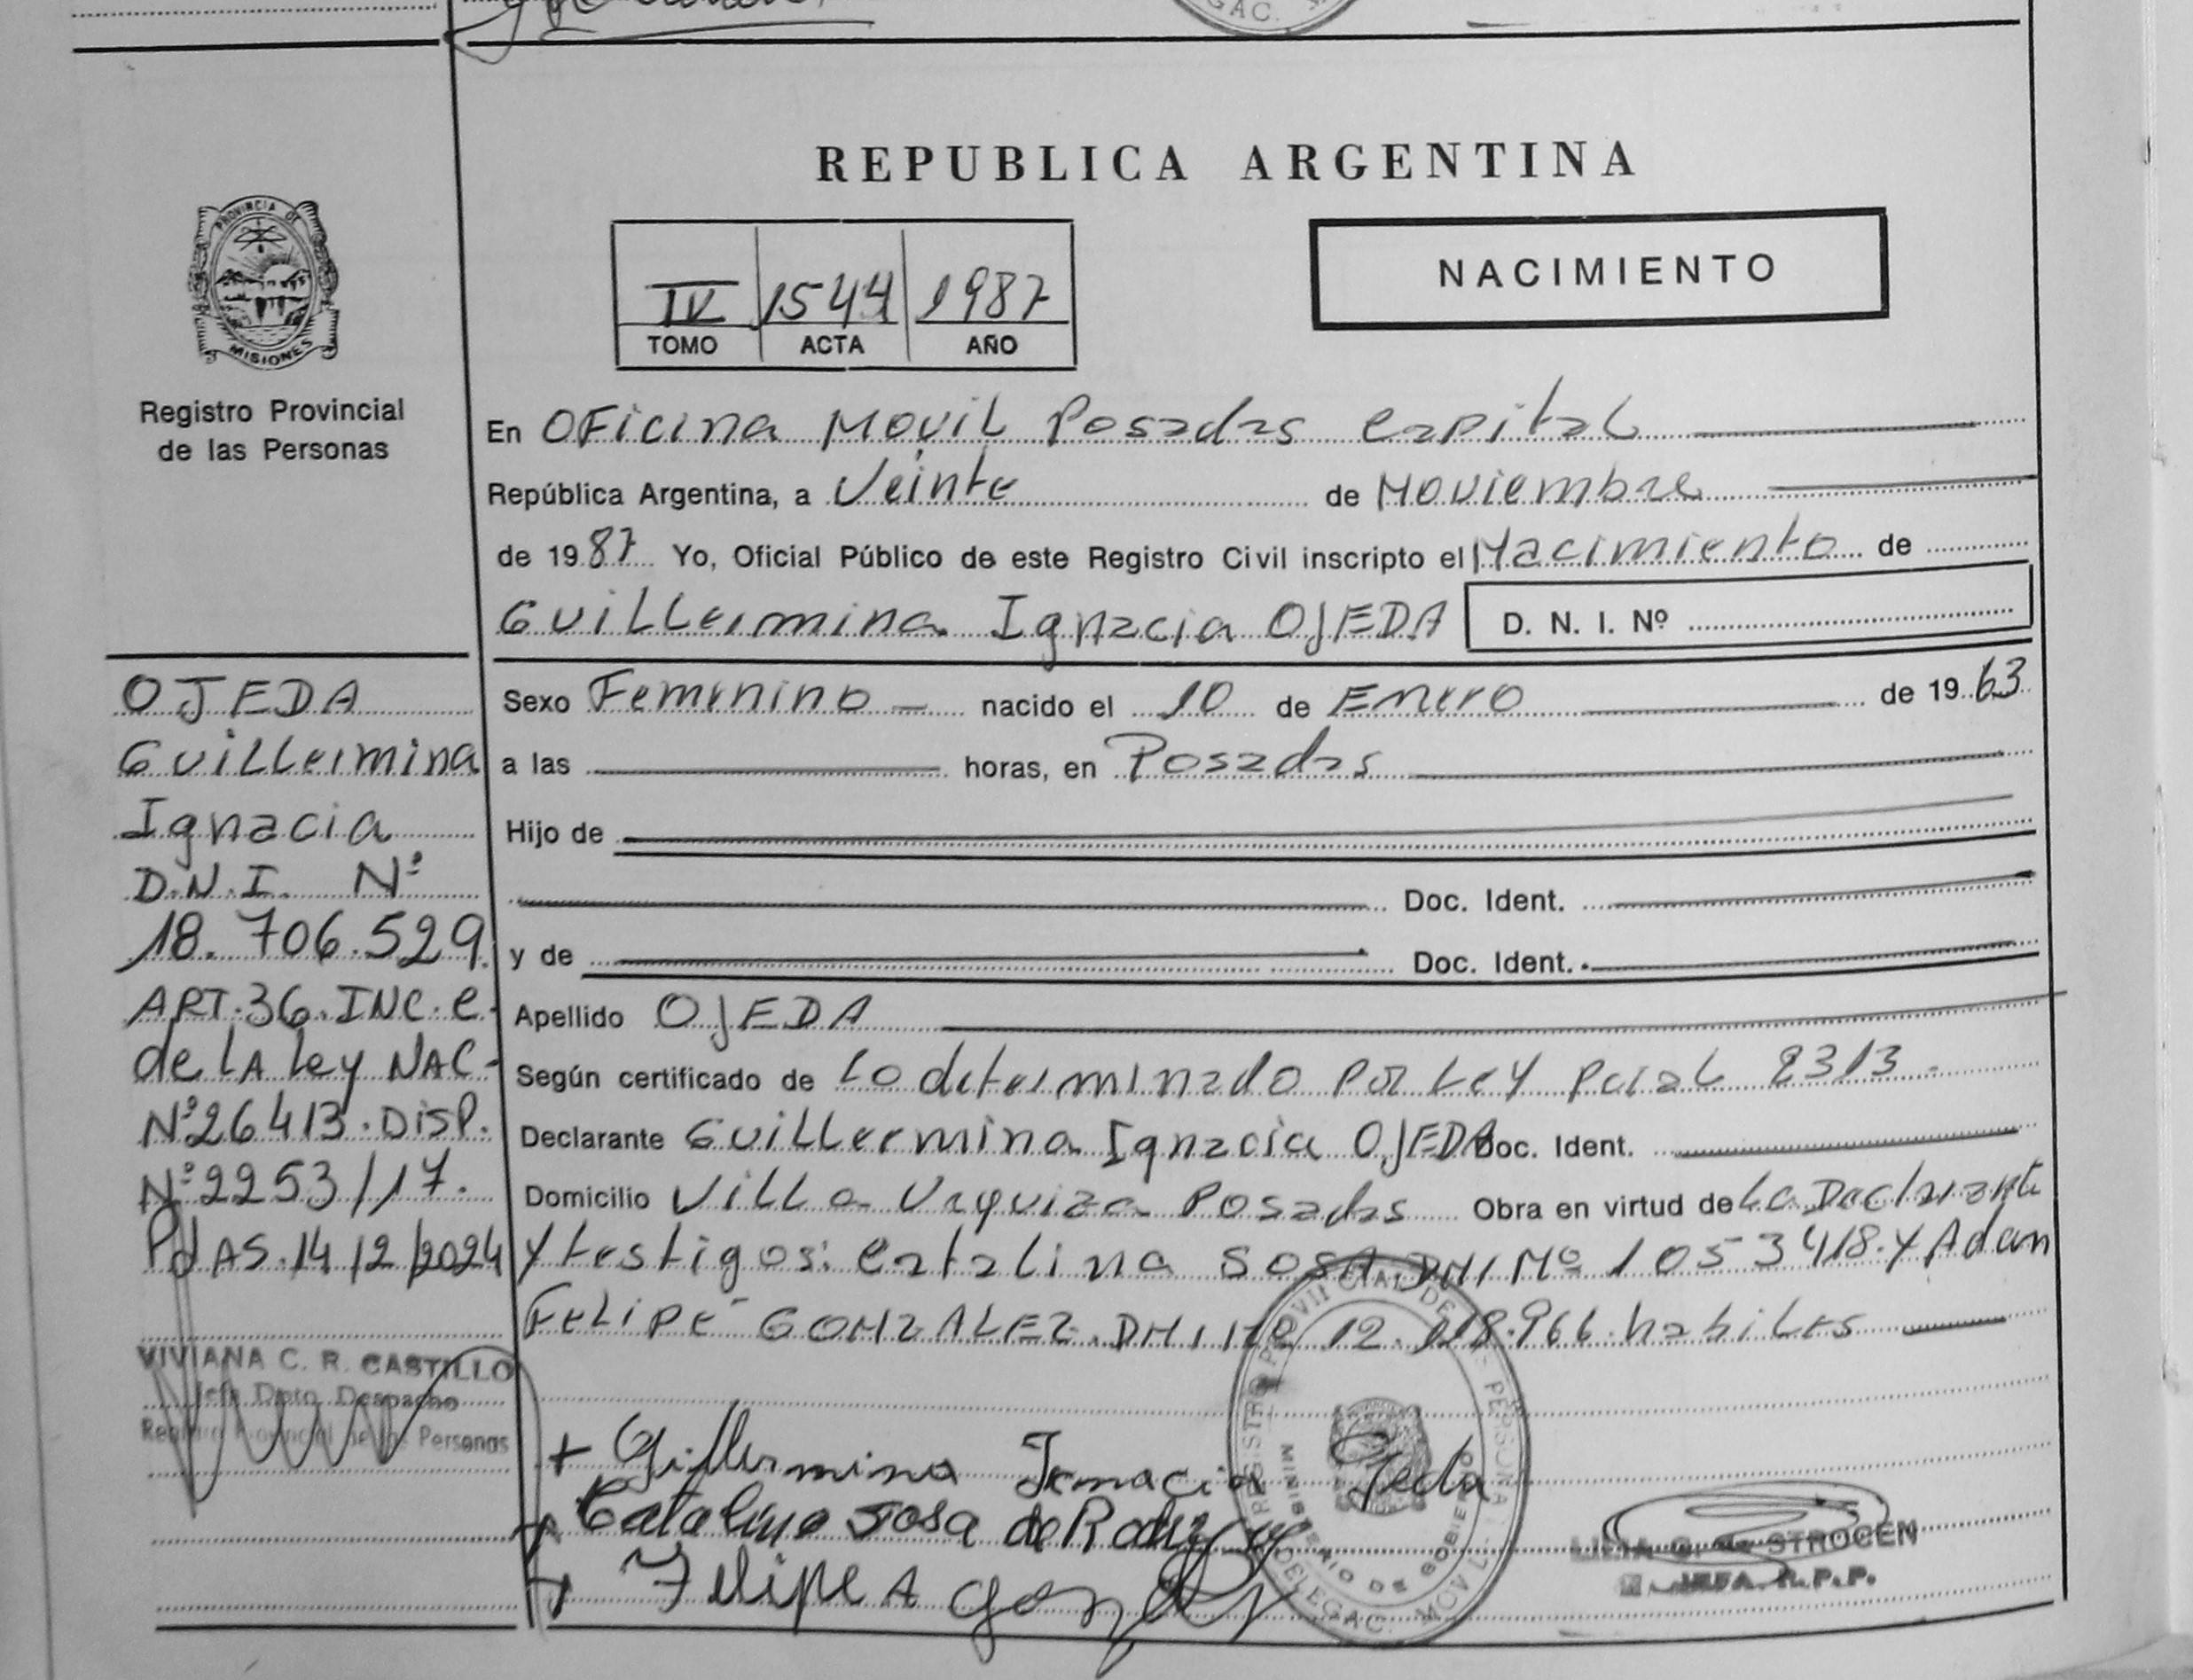 REPUBLICA ARGENTINA
PROVINCIA DE
MISIONES
Registro Provincial
de las Personas
IV 1544 1987
TOMO ACTA AÑO
NACIMIENTO
En OFicina Movil Posadas capital
República Argentina, a Veinte de Noviembre
de 1987 Yo, Oficial Público de este Registro Civil inscripto el Nacimiento de
Guillermina Ignacia OJEDA D. N. I. Nº
Sexo Femenino nacido el 10 de Enero de 1963
a las horas, en Posadas
Hijo de
Doc. Ident.
y de Doc. Ident.
Apellido OJEDA
Según certificado de Lo determinado por Ley pcial 2313
Declarante Guillermina Ignacia OJEDA Doc. Ident.
Domicilio Villa Urquiza Posadas Obra en virtud de La Declarante
y testigos: Catalina SOSA DNI Nº 1053418 y Adan
Felipe GONZALEZ DNI Nº 12. 118.966 habiles
OJEDA
Guillermina
Ignacia
D.N.I. Nº
18.706.529.
ART.36.INC.C.
de LA Ley NAC-
Nº26413.DISP.
Nº2253/17.
PdAS.14/2/2024
VIVIANA C. R. CASTILLO
Jefa Dpto. Despacho
Registro Provincial de las Personas
+ Guillermina Ignacia Ojeda
Catalina Sosa de
Felipe A
REGISTRO PROVINCIAL DE LAS PERSONAS
MINISTERIO DE GOBIERNO
DELEGAC. MOVIL
STROCEN
JEFA R.P.P.